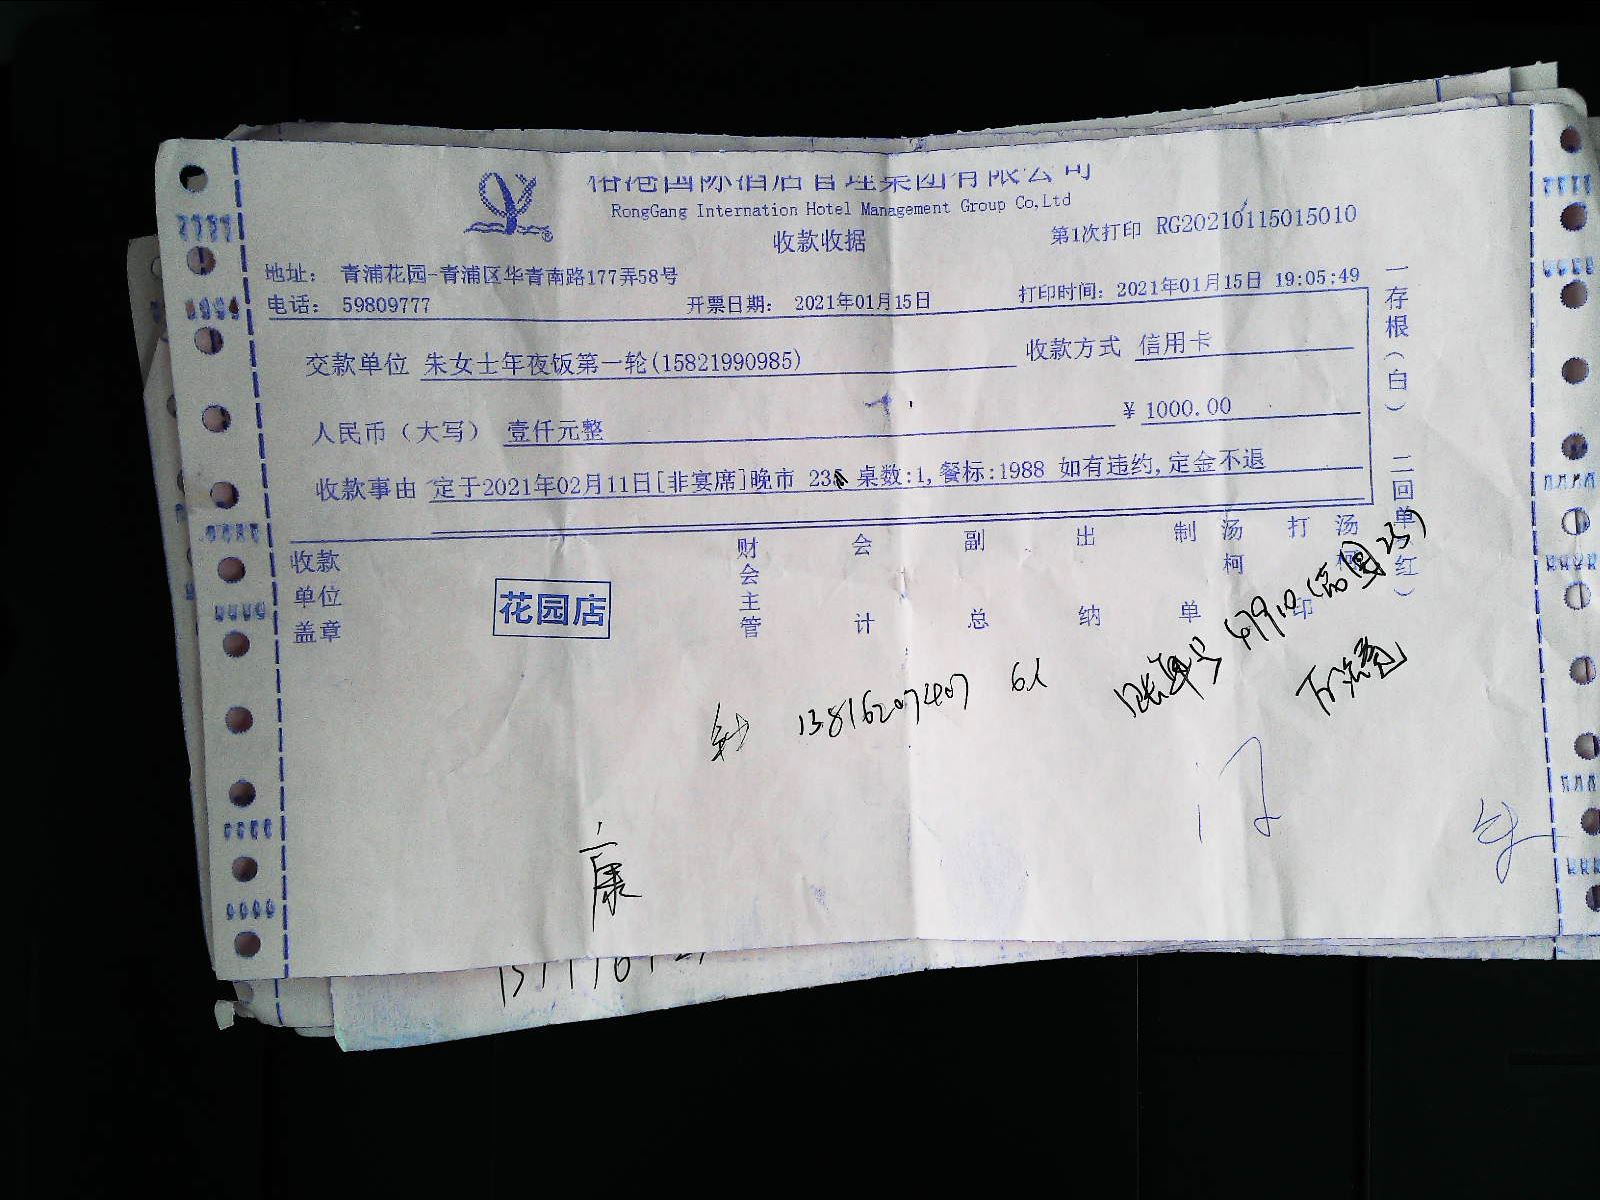 国际酒店管理集团有限公司
RongGang International Hotel Management Group Co,Ltd
收款收据
第1次打印 RG20210115015010
地址： 青浦花园-青浦区华青南路177弄58号
电话： 59809777
开票日期： 2021年01月15日
打印时间：2021年01月15日 19:05:49
交款单位 朱女士年夜饭第一轮(15821990985)
收款方式 信用卡
人民币（大写） 壹仟元整
¥ 1000.00
收款事由 定于2021年02月11日[非宴席]晚市 23 桌数:1,餐标:1988 如有违约,定金不退
一存根（白） 二回单（红）
收款单位盖章
花园店
财会主管
会计
副总
出纳
制单
汤柯
打印
汤柯
13816207407 6人
账单号 67910
康